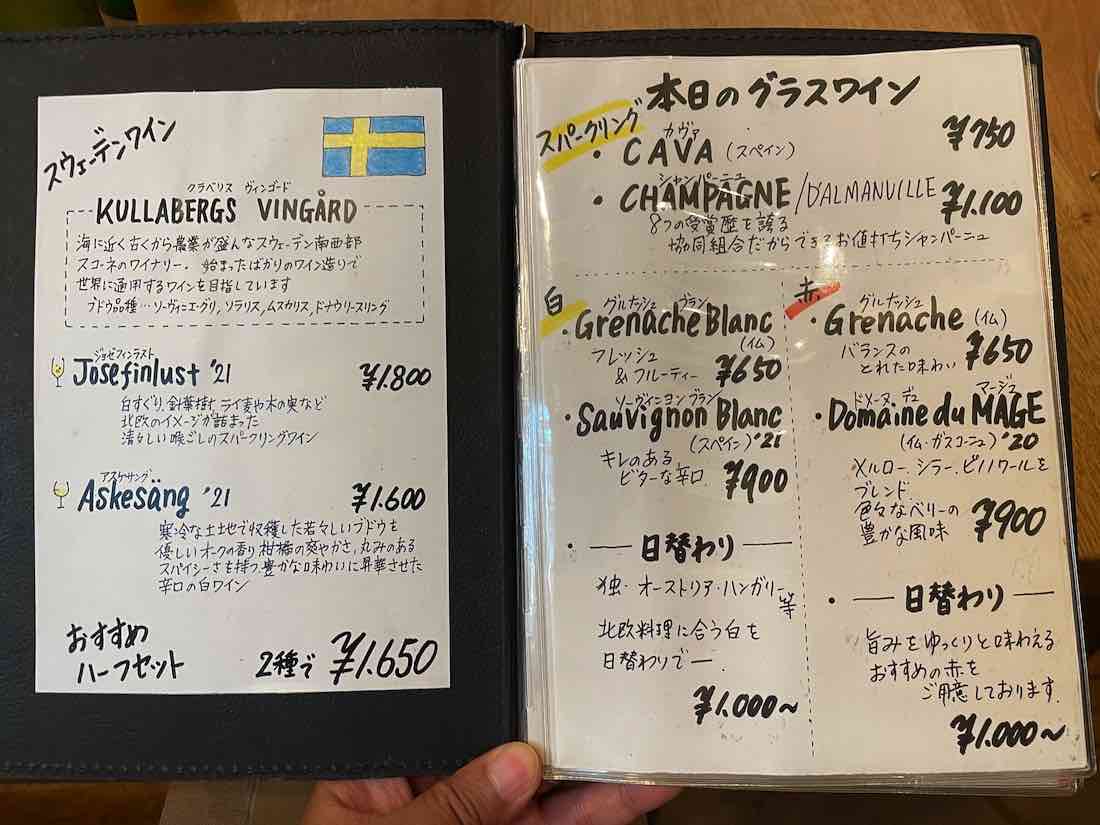 スウェーデンワイン
クラベリス ヴィンゴード
KULLABERGS VINGÅRD
海に近く古くから農業が盛んなスウェーデン南西部
スコーネのワイナリー. 始まったばかりのワイン造りで
世界に通用するワインを目指しています
ブドウ品種…ソーヴィニエグリ, ソラリス, ムスカリス, ドナウリースリング
ジョゼフィンラスト
Josefinlust '21 ¥1.800
白すぐり, 針葉樹, ライ麦や木の実など
北欧のイメージが詰まった
清々しい喉ごしのスパークリングワイン
アスケサング
Askesäng '21 ¥1.600
寒冷な土地で収穫した若々しいブドウを
優しいオークの香り 柑橘の爽やかさ, 丸みのある
スパイシーさを持つ豊かな味わいに昇華させた
辛口の白ワイン
おすすめ
ハーフセット 2種で ¥1.650
本日のグラスワイン
スパークリング
カヴァ
・CAVA (スペイン) ¥750
シャンパーニュ
・CHAMPAGNE/D'ALMANVILLE ¥1.100
8つの受賞歴を誇る
協同組合だからできるお値打ちシャンパーニュ
白
グルナッシュ ブラン
・Grenache Blanc
(イム)
フレッシュ
&フルーティー ¥650
ソーヴィーニヨンブラン
・Sauvignon Blanc
(スペイン) '21
キレのある
ビターな辛口. ¥900
・ ― 日替わり ―
独・オーストリア・ハンガリー等
北欧料理に合う白を
日替わりで ―.
¥1.000~
赤
グルナッシュ
・Grenache (イム)
バランスの
とれた味わい ¥650
ドメーヌ・デュ マージュ
・Domaine du MAGE
(イム・ガスコーニュ) '20
メルロー, シラー, ピノノワールを
ブレンド
色々なベリーの
豊かな風味 ¥900
・ ― 日替わり ―
旨みをゆっくりと味わえる
おすすめの赤を
ご用意しております.
¥1.000~